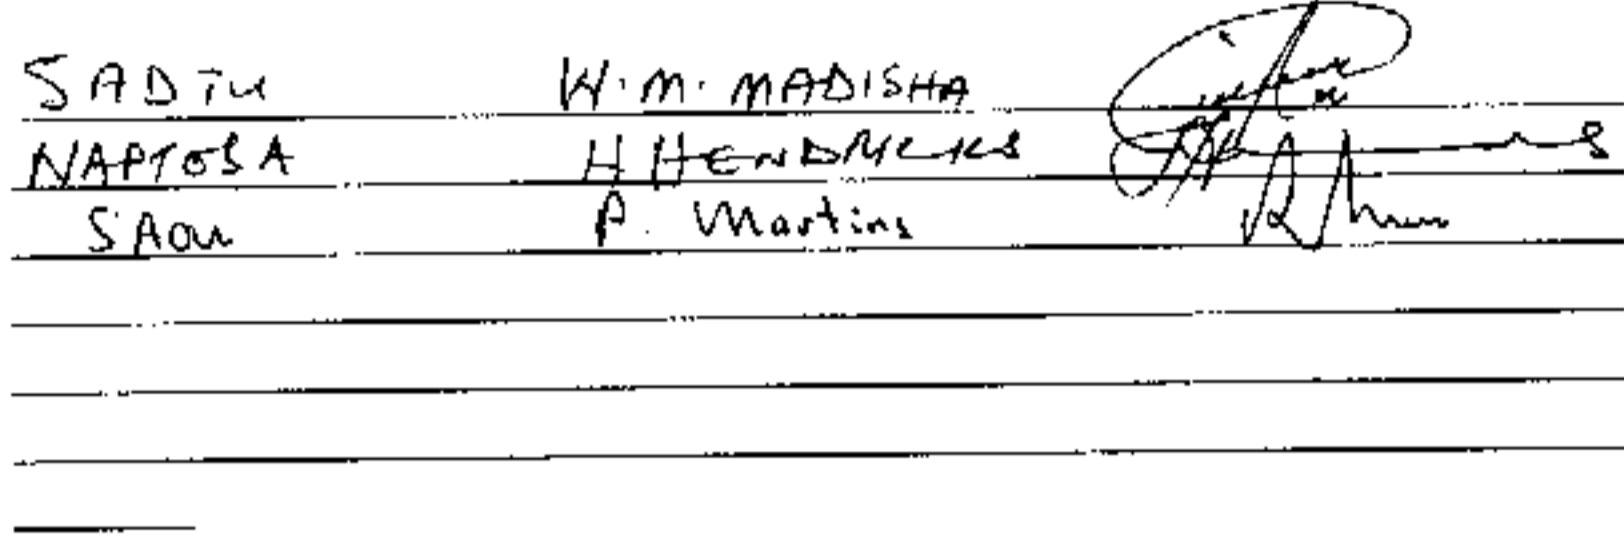 SADTU W.M. MADISHA
NAPTOSA H HENDRICKS
SAOU P. Martins